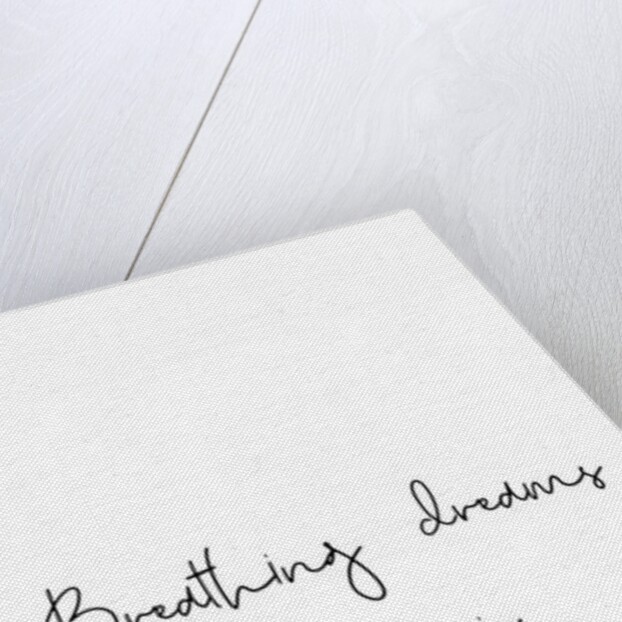 Breathing dreams